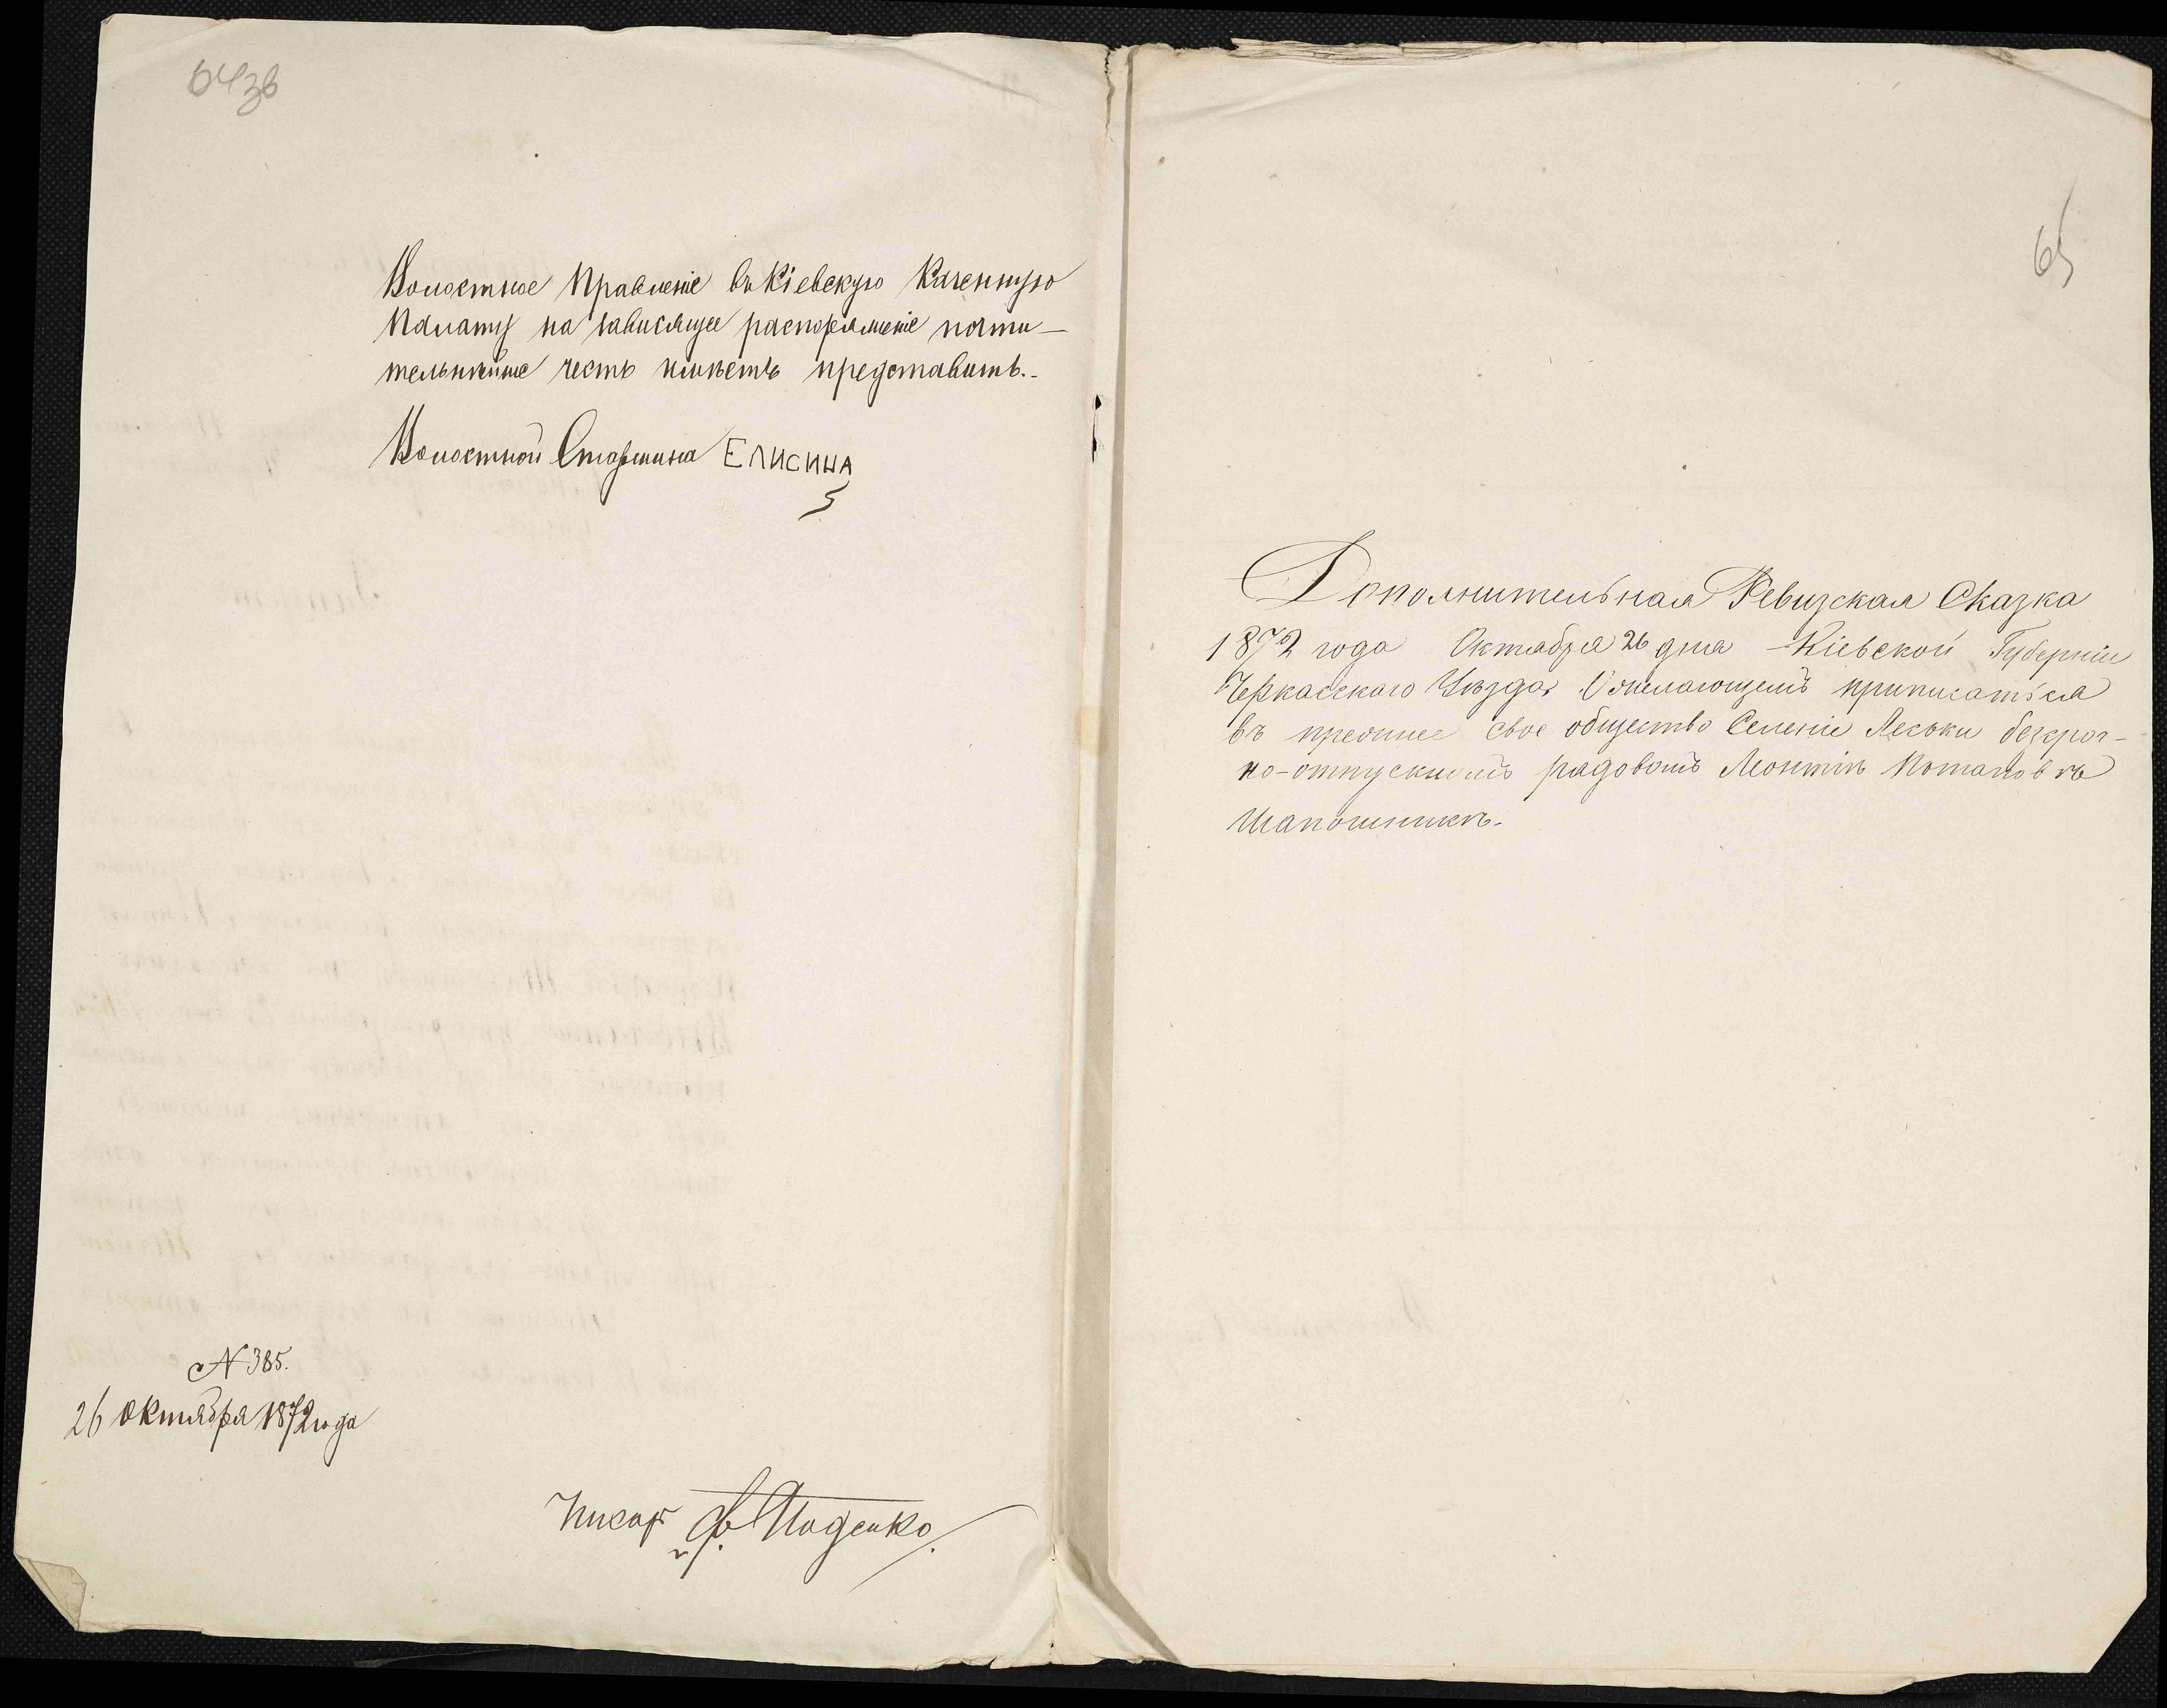 64зв
Волостное Правленіе въ Кіевскую Казенную
Палату на зависящее распоряженіе почти-
тельнѣйше честь имѣетъ представить.-
Волостной Старшина ЕЛИСИНА
N 385.
26 Октября 1872 года
Писарь
65
Дополнительная Ревизская Сказка
1872 года Октября 26 дня Кіевской Губерніи
Черкасского Уѣзда. О желающемъ приписаться
въ прежнее свое общество Селеніе Леськи безсроч-
но-отпускномъ рядовомъ Леонтіѣ Потаповѣ
Шапошникѣ.